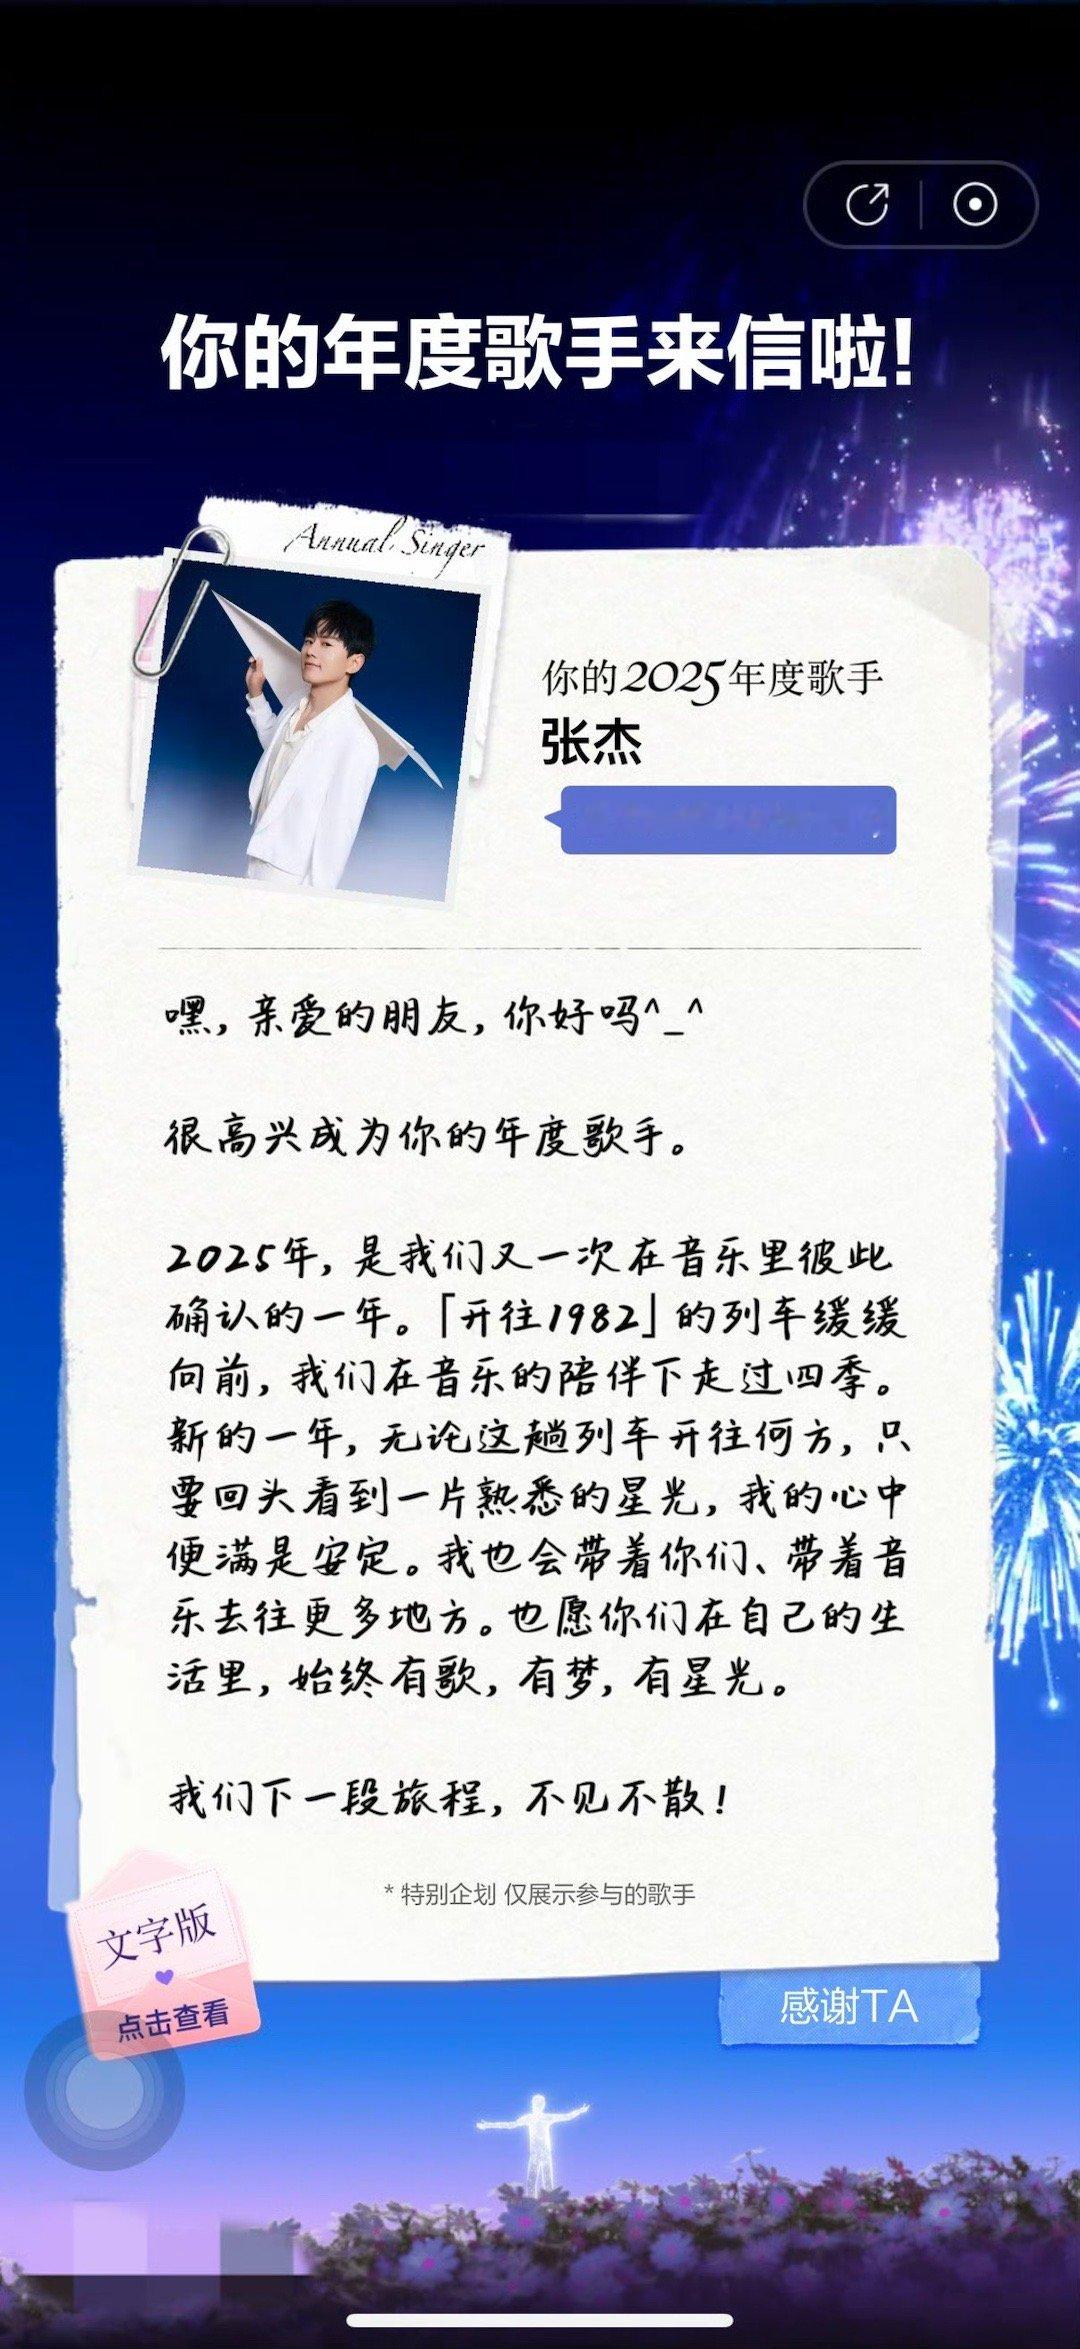 你的年度歌手来信啦!
Annual Singer
你的2025年度歌手
张杰
嘿，亲爱的朋友，你好吗^_^
很高兴成为你的年度歌手。
2025年，是我们又一次在音乐里彼此
确认的一年。「开往1982」的列车缓缓
向前，我们在音乐的陪伴下走过四季。
新的一年，无论这趟列车开往何方，只
要回头看到一片熟悉的星光，我的心中
便满是安定。我也会带着你们、带着音
乐去往更多地方。也愿你们在自己的生
活里，始终有歌，有梦，有星光。
我们下一段旅程，不见不散！
*特别企划 仅展示参与的歌手
文字版
点击查看
感谢TA